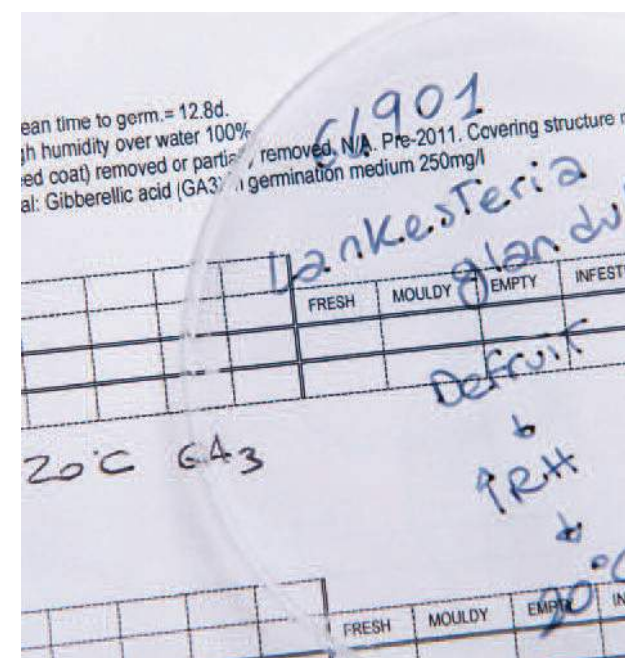 ean time to germ.= 12.8d.
gh humidity over water 100%
ed coat) removed or partia removed, N/A. Pre-2011. Covering structure
al: Gibberellic acid (GA3) germination medium 250mg/l
61901
Lankesteria
glandu
FRESH MOULDY EMPTY INFEST
Defruit
↓
↑RH
↓
20°C
20°C GA3
FRESH MOULDY EMPTY IN